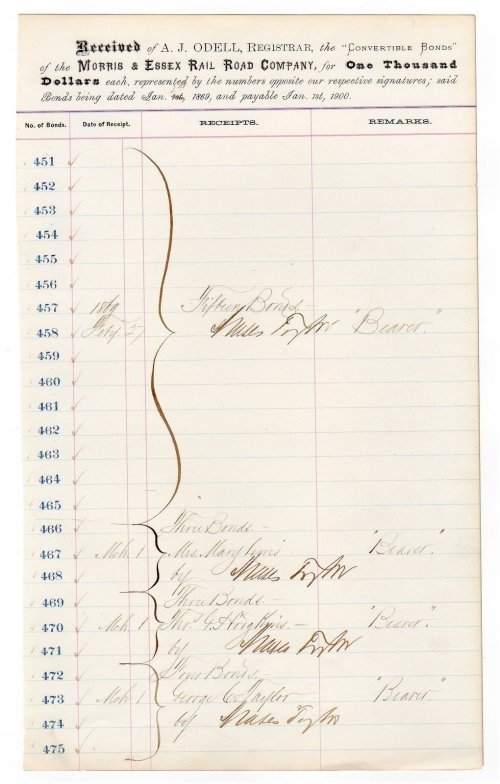 Received of A. J. ODELL, REGISTRAR, the "CONVERTIBLE BONDS"
of the MORRIS & ESSEX RAIL ROAD COMPANY, for One Thousand
Dollars each, represented by the numbers opposite our respective signatures; said
Bonds being dated Jan. 1st, 1869, and payable Jan. 1st, 1900.
No. of Bonds. Date of Receipt. RECEIPTS. REMARKS.
451
452
453
454
455
456
457 1869 Fifteen Bonds —
458 Feby 27 Moses Taylor "Bearer."
459
460
461
462
463
464
465
466 Three Bonds —
467 Mch 1 Mrs. Mary "Bearer."
468 by Moses Taylor
469 Three Bonds —
470 Mch 1 Thos. G. "Bearer."
471 by Moses Taylor
472 Four Bonds
473 Mch 1 George C. Taylor "Bearer"
474 by Moses Taylor
475